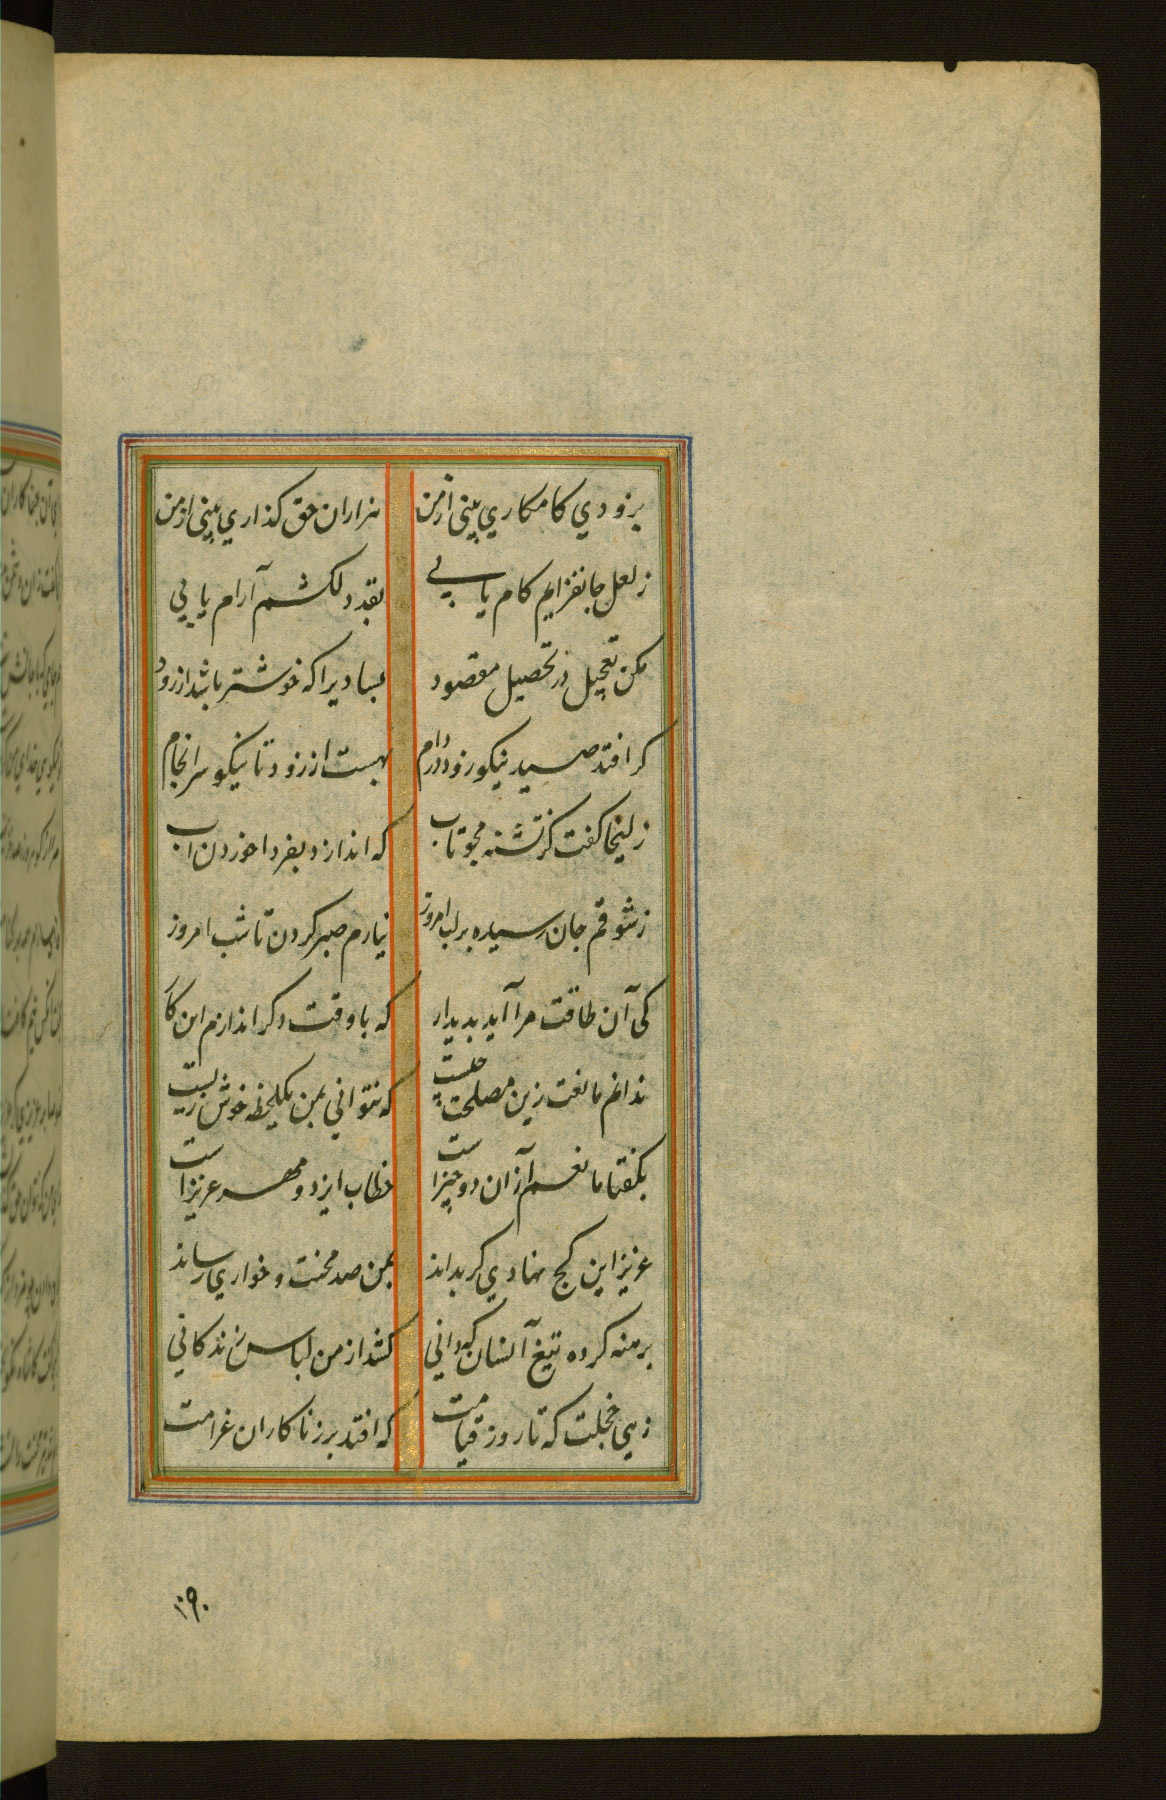 بزودي کامکاري بيني از من هزاران حق کذاري بيني از من
ز لعل جانفزايم کام يابي بقد دلکشم آرام يابي
مکن تعجيل در تحصيل مقصود بسا ديرا که خوشتر باشد از زود
کر افتد صيد نيکو زود در دام بهست از زود تا نيکو سرانجام
زليخا کفت کز تشنه مجو تاب که اندازد بفردا خوردن اب
ز شوقم جان رسيده بر لب امروز نيارم صبر کردن تا شب امروز
کي آن طاقت مرا آيد بديدار که با وقت دکر اندازم اين کا
ندانم مانعت زين مصلحت چيست که نتواني بمن يکلحظه خوش زيست
بکفتا مانعم از آن دو چيز است خطاب ايزد و مهر عزيز است
عزيز اين کج نهادي کر بداند بمن صد محنت و خواري رساند
برهنه کرده تيغ آنسان که داني کشد از من لباس زندکاني
زهي خجلت که تا روز قيامت که افتد بر زناکاران غرامت